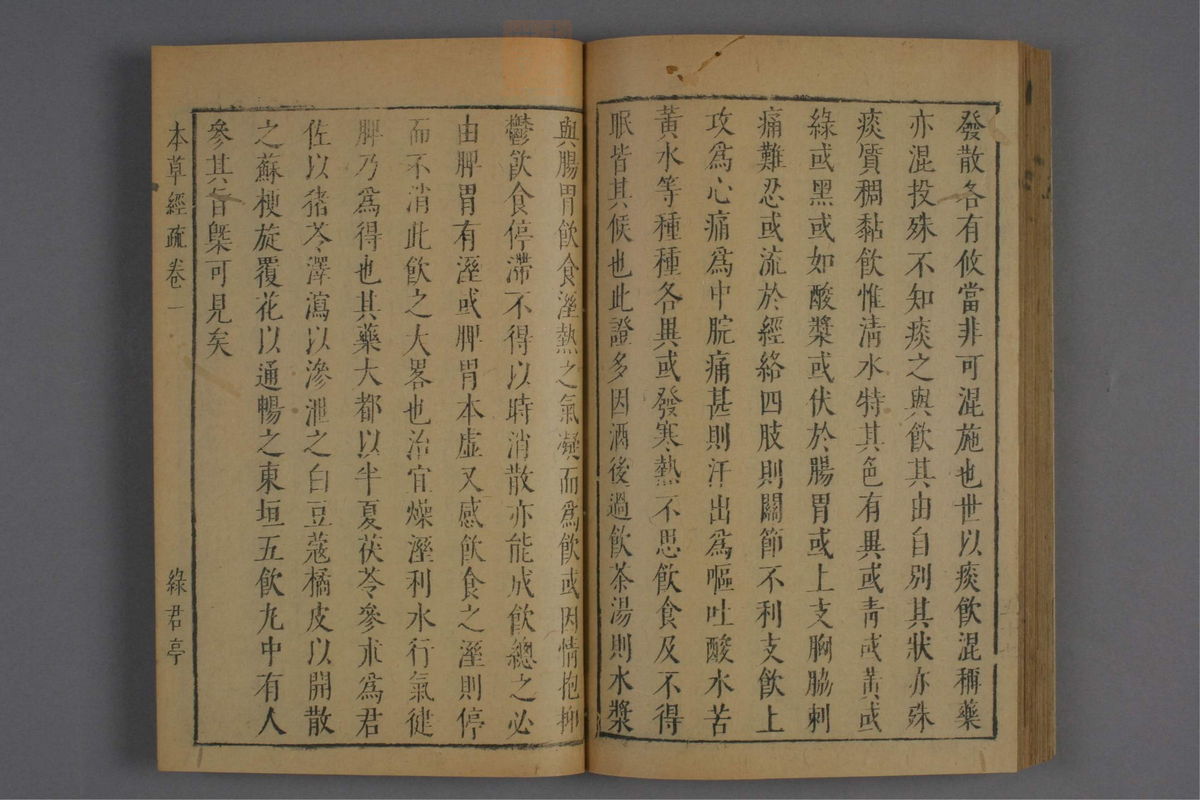 發散各有攸當非可混施也世以痰飲混稱藥
亦混投殊不知痰之與飲其由自別其狀亦殊
痰質稠黏飲惟清水特其色有異或青或黃或
綠或黑或如酸漿或伏於腸胃或上支胸脇刺
痛難忍或流於經絡四肢則關節不利支飲上
攻為心痛為中脘痛甚則汗出為嘔吐酸水苦
黃水等種種各異或發寒熱不思飲食及不得
眠皆其候也此證多因酒後過飲茶湯則水漿
與腸胃飲食溼熱之氣凝而為飲或因情抱抑
鬱飲食停滯不得以時消散亦能成飲總之必
由脾胃有溼或脾胃本虛又感飲食之溼則停
而不消此飲之大畧也治宜燥溼利水行氣健
脾乃為得也其藥大都以半夏茯苓參朮為君
佐以猪苓澤瀉以滲泄之白豆蔻橘皮以開散
之蘇梗旋覆花以通暢之東垣五飲丸中有人
參其旨槩可見矣
本草經疏 卷一 綠君亭